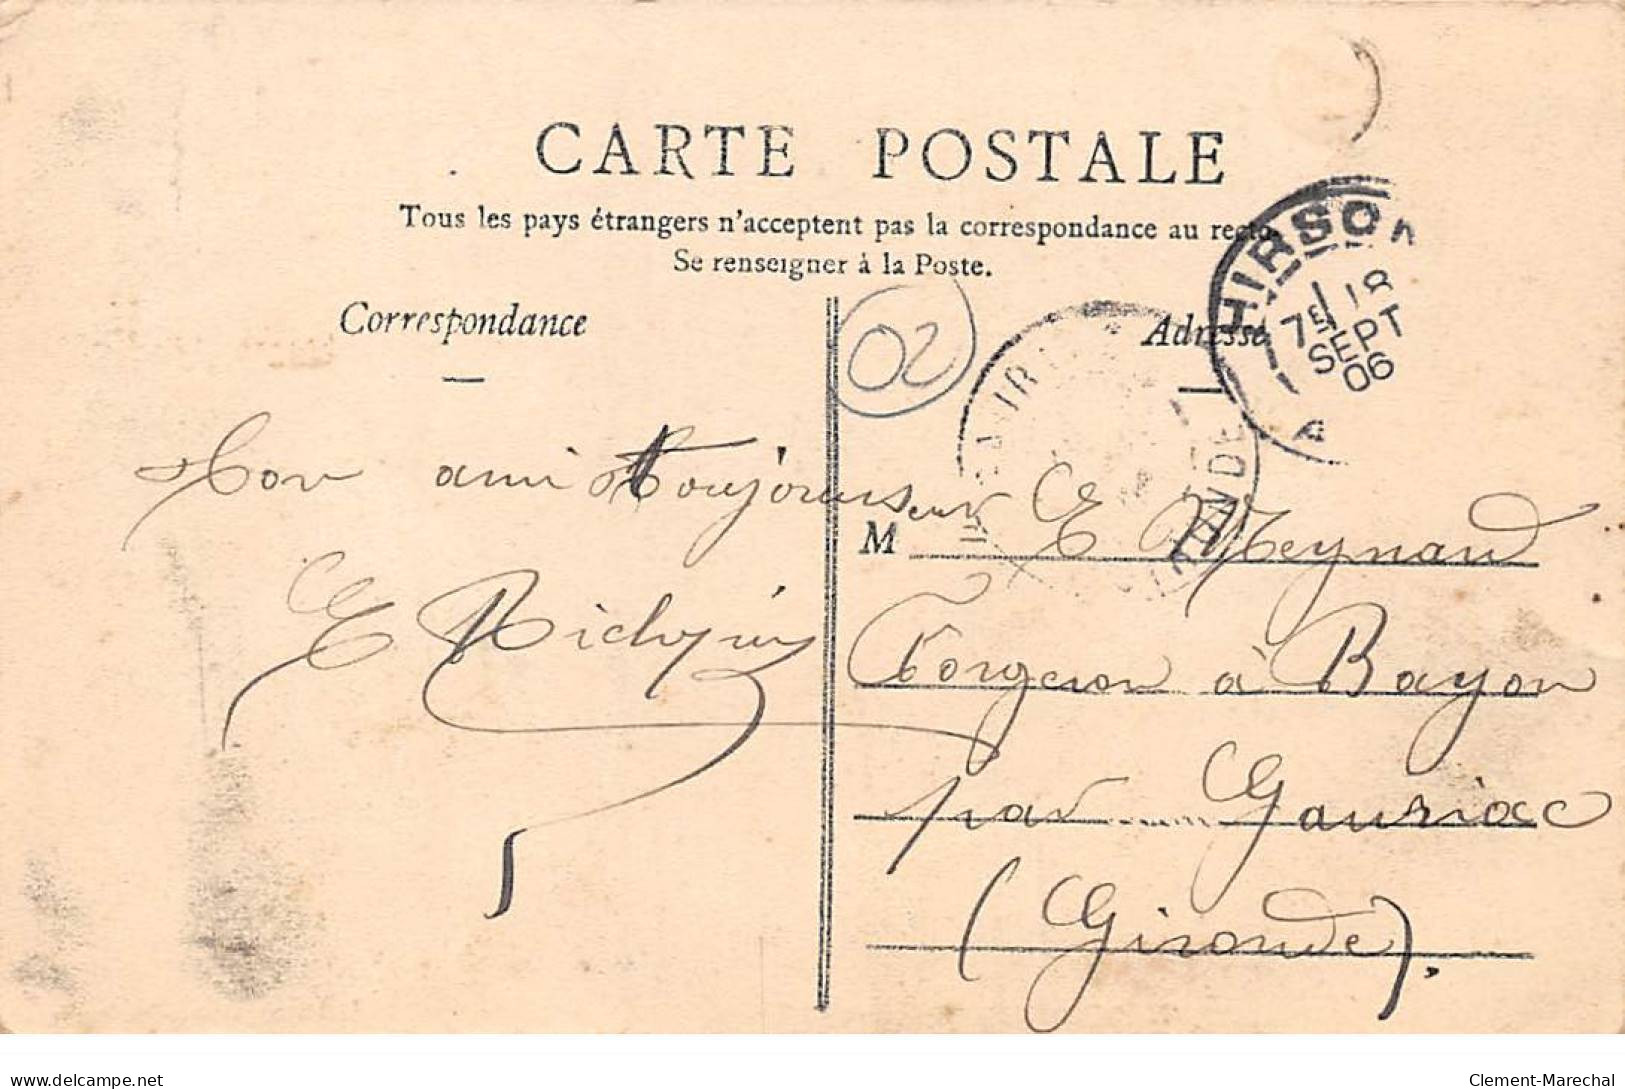 CARTE POSTALE
Tous les pays étrangers n'acceptent pas la correspondance au recto.
Se renseigner à la Poste.
Correspondance
Adresse
02
HIRSON
7E 18
SEPT
06
A
GIRONDE
Ton ami Toujours
E
M E Meynard
Forgeron à Bayon
par Gauriac
(Gironde).
delcampe.net
Clement-Marechal